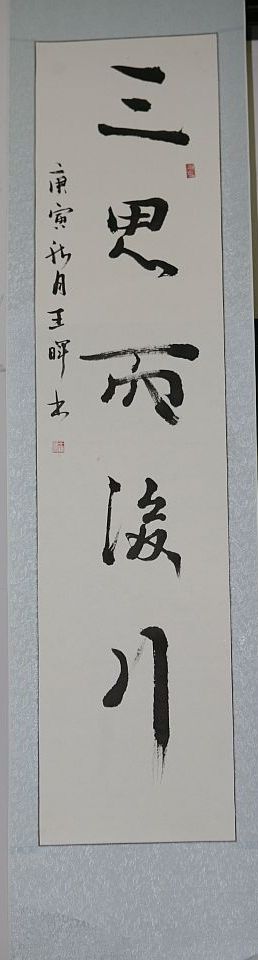 三思而後行
庚寅秋月王暉书